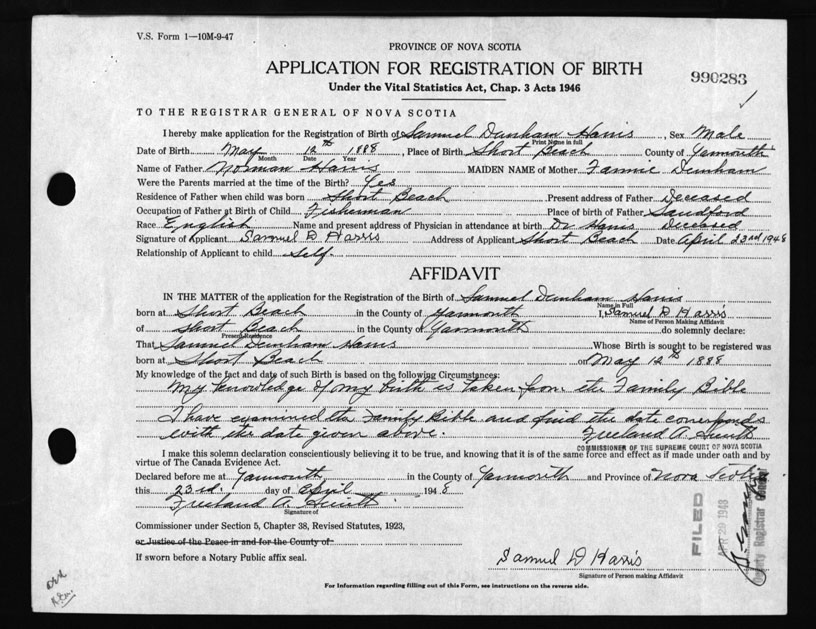 V.S. Form 1—10M-9-47
PROVINCE OF NOVA SCOTIA
APPLICATION FOR REGISTRATION OF BIRTH
990283
Under the Vital Statistics Act, Chap. 3 Acts 1946
TO THE REGISTRAR GENERAL OF NOVA SCOTIA
I hereby make application for the Registration of Birth of Samuel Dunham Harris, Sex Male
Print Name in full
Date of Birth May 12th 1888, Place of Birth Short Beach County of Yarmouth
Month Date Year
Name of Father Norman Harris MAIDEN NAME of Mother Fannie Dunham
Were the Parents married at the time of the Birth? Yes
Residence of Father when child was born Short Beach Present address of Father Deceased
Occupation of Father at Birth of Child Fisherman Place of birth of Father Sandford
Race English Name and present address of Physician in attendance at birth Dr Harris Deceased
Signature of Applicant Samuel D Harris Address of Applicant Short Beach Date April 23rd 1948
Relationship of Applicant to child Self
AFFIDAVIT
IN THE MATTER of the application for the Registration of the Birth of Samuel Dunham Harris
Name in Full
born at Short Beach in the County of Yarmouth I, Samuel D Harris
Name of Person Making Affidavit
of Short Beach in the County of Yarmouth do solemnly declare:
Present Residence
That Samuel Dunham Harris Whose Birth is sought to be registered was
born at Short Beach on May 12th 1888
My knowledge of the fact and date of such Birth is based on the following Circumstances:
My knowledge of my birth is taken from the Family Bible
I have examined the Family Bible and find the date corresponds
with the date given above. Freeland A. Smith
COMMISSIONER OF THE SUPREME COURT OF NOVA SCOTIA
I make this solemn declaration conscientiously believing it to be true, and knowing that it is of the same force and effect as if made under oath and by
virtue of The Canada Evidence Act.
Declared before me at Yarmouth in the County of Yarmouth and Province of Nova Scotia
this 23rd day of April 1948
Freeland A. Smith
Signature of
Commissioner under Section 5, Chapter 38, Revised Statutes, 1923,
or Justice of the Peace in and for the County of
If sworn before a Notary Public affix seal.
Samuel D Harris
Signature of Person making Affidavit
For Information regarding filling out of this Form, see instructions on the reverse side.
FILED
APR 29 1948
Deputy Registrar General